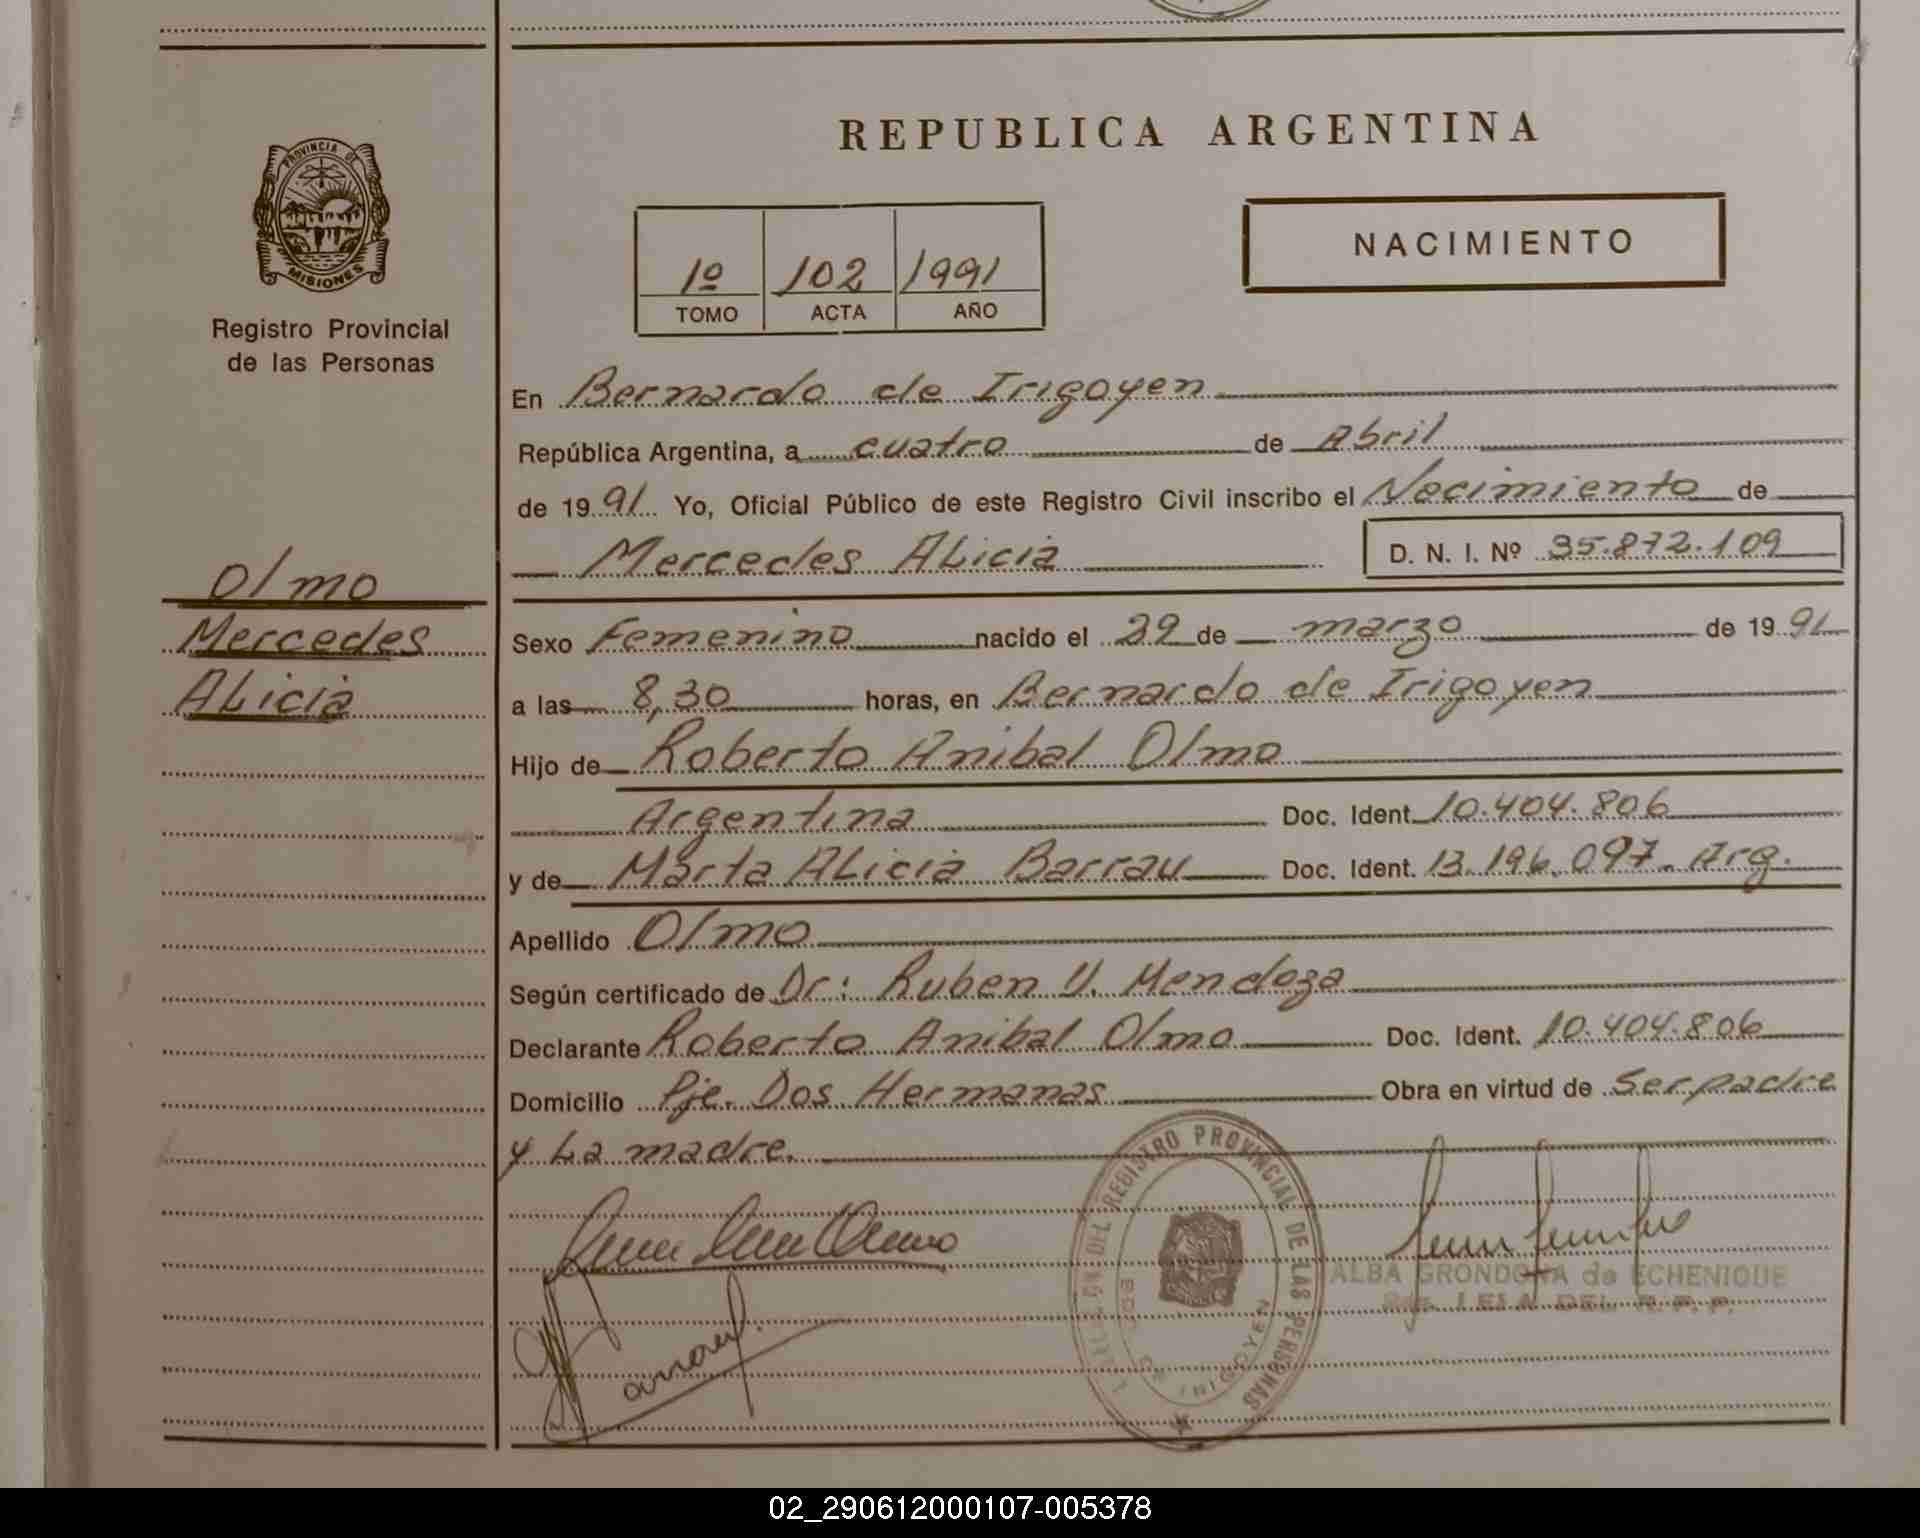 REPUBLICA ARGENTINA
PROVINCIA DE
MISIONES
Registro Provincial
de las Personas
1º 102 1991
TOMO ACTA AÑO
NACIMIENTO
En Bernardo de Irigoyen
República Argentina, a cuatro de Abril
de 1991 Yo, Oficial Público de este Registro Civil inscribo el Nacimiento de
Mercedes ALicia D. N. I. Nº 35.872.109
Olmo
Mercedes
ALicia
Sexo Femenino nacido el 29 de marzo de 1991
a las 8,30 horas, en Bernardo de Irigoyen
Hijo de Roberto Anibal Olmo
Argentina Doc. Ident. 10.404.806
y de Marta ALicia Barrau Doc. Ident. 13.196.097. Arg.
Apellido Olmo
Según certificado de Dr: Ruben V. Mendoza
Declarante Roberto Anibal Olmo Doc. Ident. 10.404.806
Domicilio Pje. Dos Hermanas Obra en virtud de Ser padre
y La madre.
DEL REGISTRO PROVINCIAL DE LAS PERSONAS
IRIGOYEN
ALBA GRONDONA de ECHENIQUE
DEL R. P. P.
02_290612000107-005378